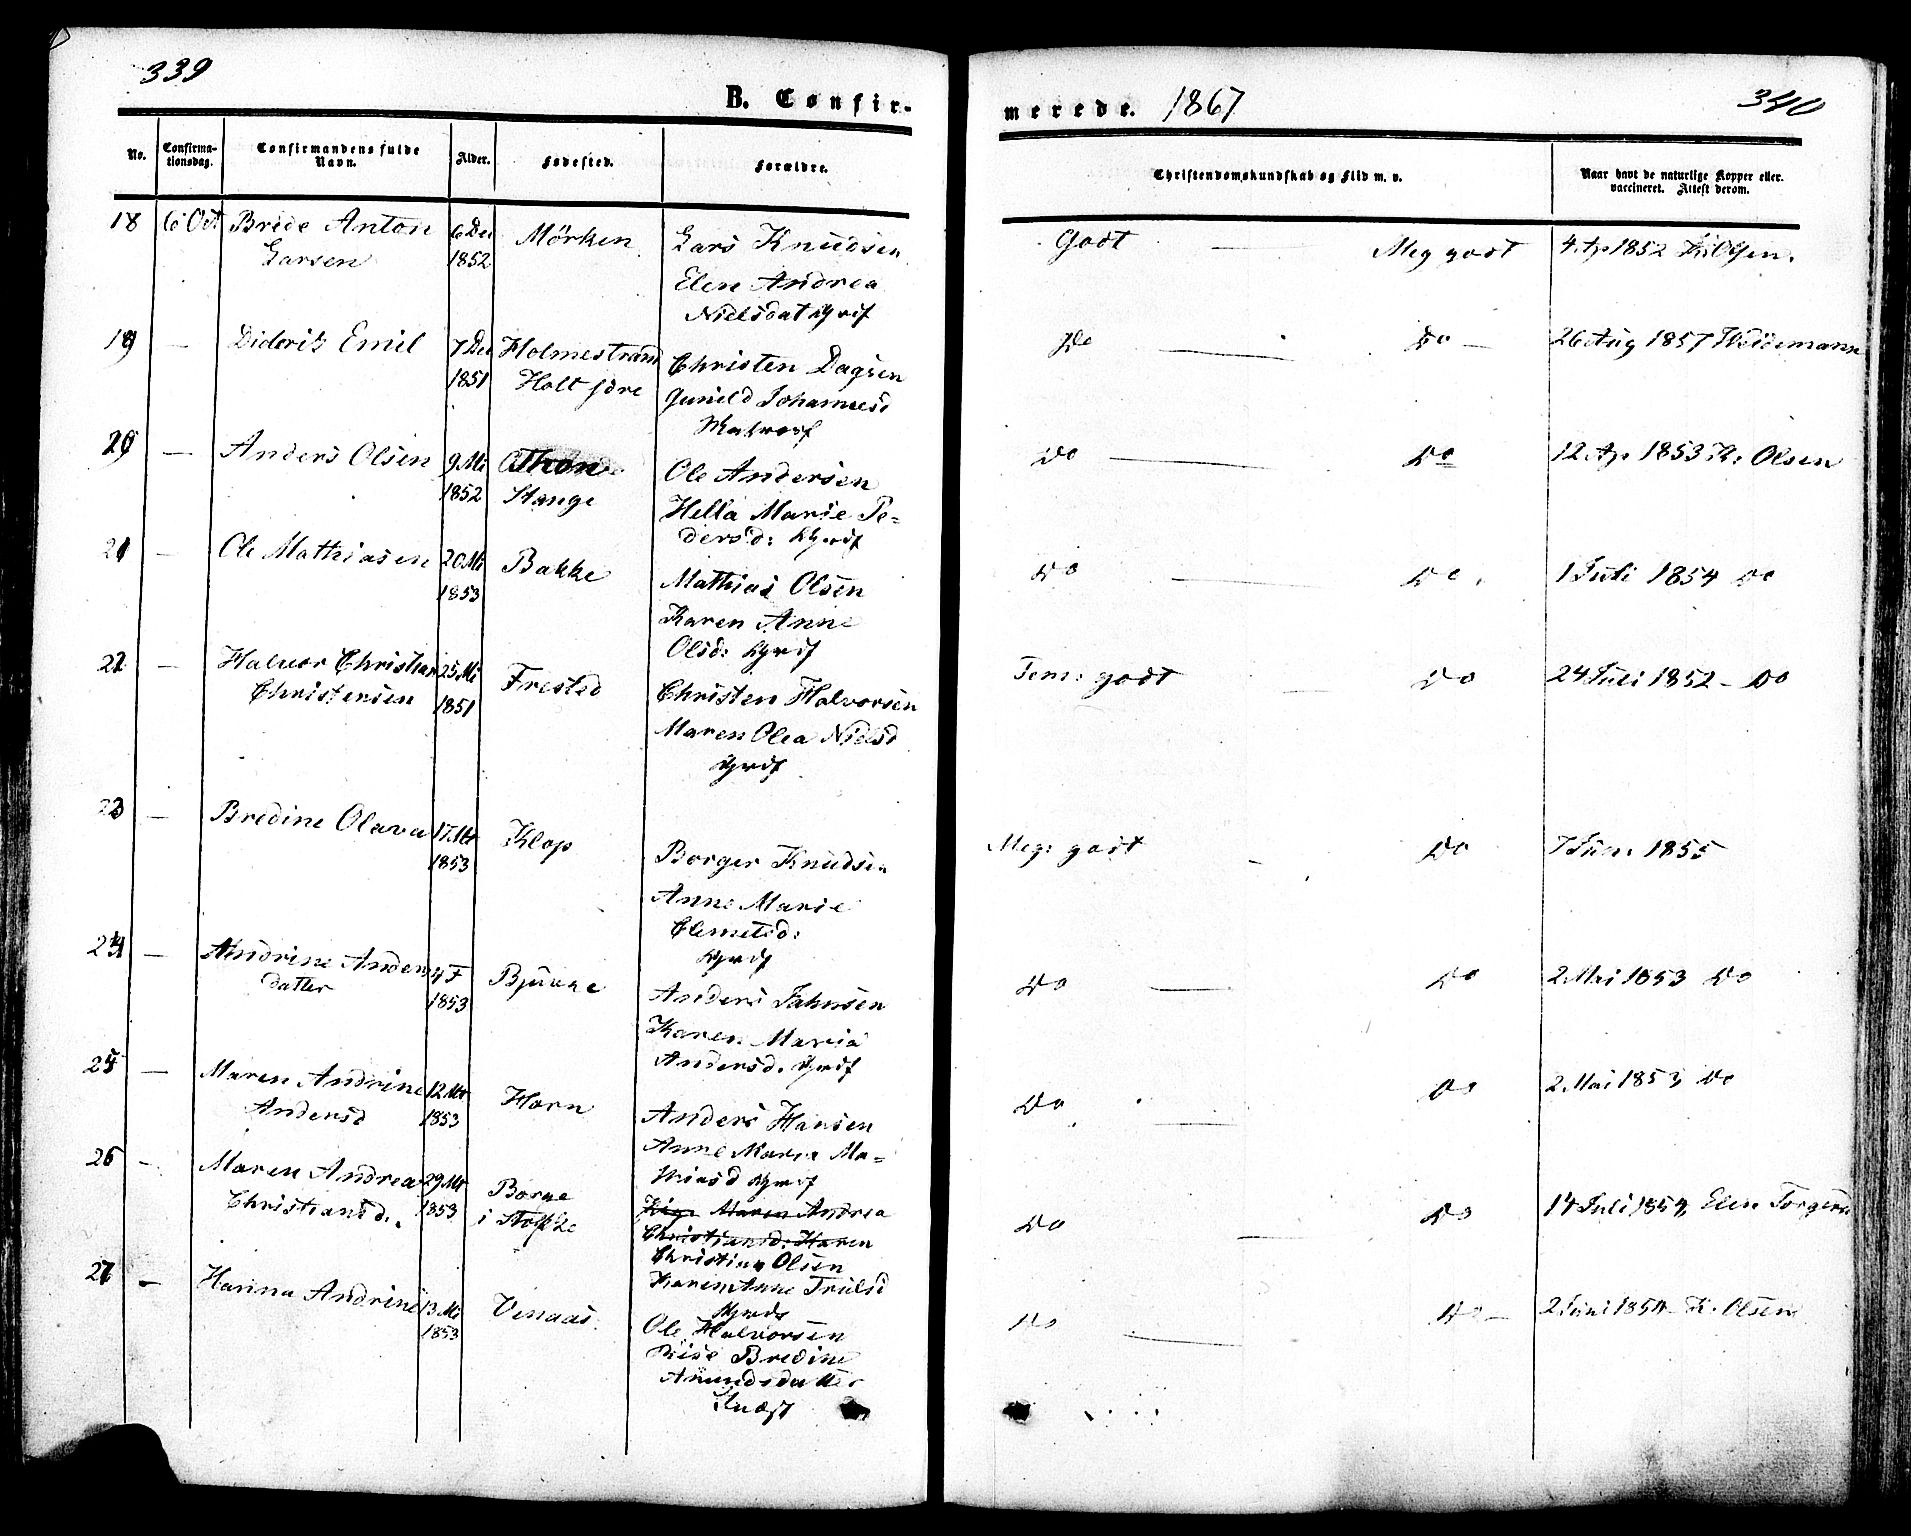 339
B. Confir-
merede. 1867
340
No.
Confirma-
tionsdag.
Confirmandens fulde
Navn.
Alder.
Fødested.
Forældre.
Christendomskundskab og Flid m. v.
Naar havt de naturlige Kopper eller
vaccineret. Attest derom.
18 6 Oct Brede Anton 6 Dec Mörken Lars Knudsen Godt — Meg godt 4 Ap 1852 K: Olsen.
Larsen 1852 Elen Andrea
Nielsdat Grdf
19 — Diderik Emil 7 Dec Holmestrand Christen Dagsen Do — Do — 26 Aug 1857 Weidemann
1851 Holt Gunild Johannesd
20 — Anders Olsen 9 Mi Ole Andersen Do — Do 12 Ap. 1853 K: Olsen
1852 Stange Hella Marie Pe-
dersd: Grdf
21 — Ole Mathiasen 20 Mi Bakke Mathias Olsen Do — Do 1 Juli 1854 Do
1853 Karen Anne
Olsd: Grdf
22 — Halvor Christian 25 Mi Frestad Christen Halvorsen Tem: godt — Do 24 Juli 1852 — Do
Christensen 1851 Maren Olea Nielsd
Grdf
23 — Bredine Olava 17 Mt Klop Borger Knudsen Meg: godt — Do 7 Juni 1855
1853 Anne Marie
Clemetsd:
Grdf
24 — Andrine Anders 4 F Anders Jahnsen Do — Do 2 Mai 1853 Do
datter 1853 Karen Maria
Andersd. Grdf
25 — Maren Andrine 12 Mt Horn Anders Hansen Do — Do 2 Mai 1853 Do
Andersd 1853 Anne Maria Ma-
thiasd Grdf
26 — Maren Andrea 29 Mt Borge Maren Andrea Do — Do 14 Juli 1854 Elen Torgersd
Christiansd. 1853 i Stokke Christiansd: Karen
Christian Olsen
Karen Anne Trulsd
27 — Hanna Andrine 13 Mi Vinaas Ole Halvorsen Do — Do — 2 Juni 1854 — K. Olsen
1853 Lise Bredine
Amundsdatter